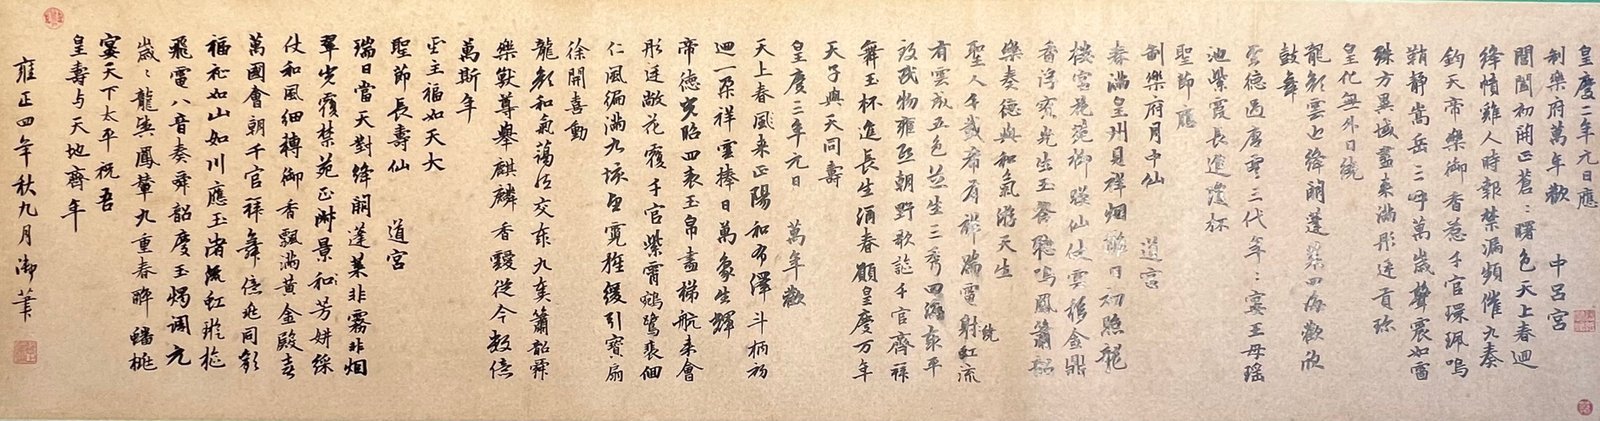 皇慶二年元日應
制樂府萬年歡　中呂宮
閶闔初開正蒼〻曙色天上春迴
絳幘雞人時報禁漏頻催九奏
鈞天帝樂御香惹千官環珮鳴
鞘靜嵩岳三呼萬歲聲震如雷
殊方異域盡來滿彤廷貢珍
皇化無外日繞
龍顏雲上絳闕蓬萊四海歡欣
鼓舞
聖德過唐虞三代年〻宴王母瑤
池紫霞長進瓊杯
聖節應
制樂府月中仙　道宮
春滿皇州見祥烟擁日初照龍
樓宮花苑御暎仙仗雲移金鼎
香浮寶光生玉斧聽鳴鳳簫韶
樂奏德與和氣游天生
聖人千載希有祥瑞電繞射虹流
有雲成五色芝生三秀四海泰平
致民物雍熙朝野歌謳千官齊拜
舞玉杯進長生酒春願皇慶万年
天子與天同壽
皇慶三年元日　萬年歡
天上春風來正陽和布澤斗柄初
迴一朵祥雲捧日萬象生輝
帝德光昭四表玉帛盡梯航來會
彤廷敞花覆千官紫霄鵷鷺裴佪
仁風徧滿九垓望霓旌緩引寶扇
徐開喜動
龍顏和氣藹然交泰九奏簫韶舜
樂獸尊舉麒麟香靉從今數億
萬斯年
聖主福如天大
聖節長壽仙　道宮
瑞日當天對絳闕蓬萊非霧非烟
翠光覆禁苑正淑景和芳妍綵
仗和風細轉御香飄滿黃金殿喜
萬國會朝千官拜舞億兆同歡
福祉如山如川應玉渚流虹璇樞
飛電八音奏舜韶慶玉燭調元
歲〻龍輿鳳輦九重春醉蟠桃
宴天下太平祝吾
皇壽与天地齊年
雍正四年秋九月御筆